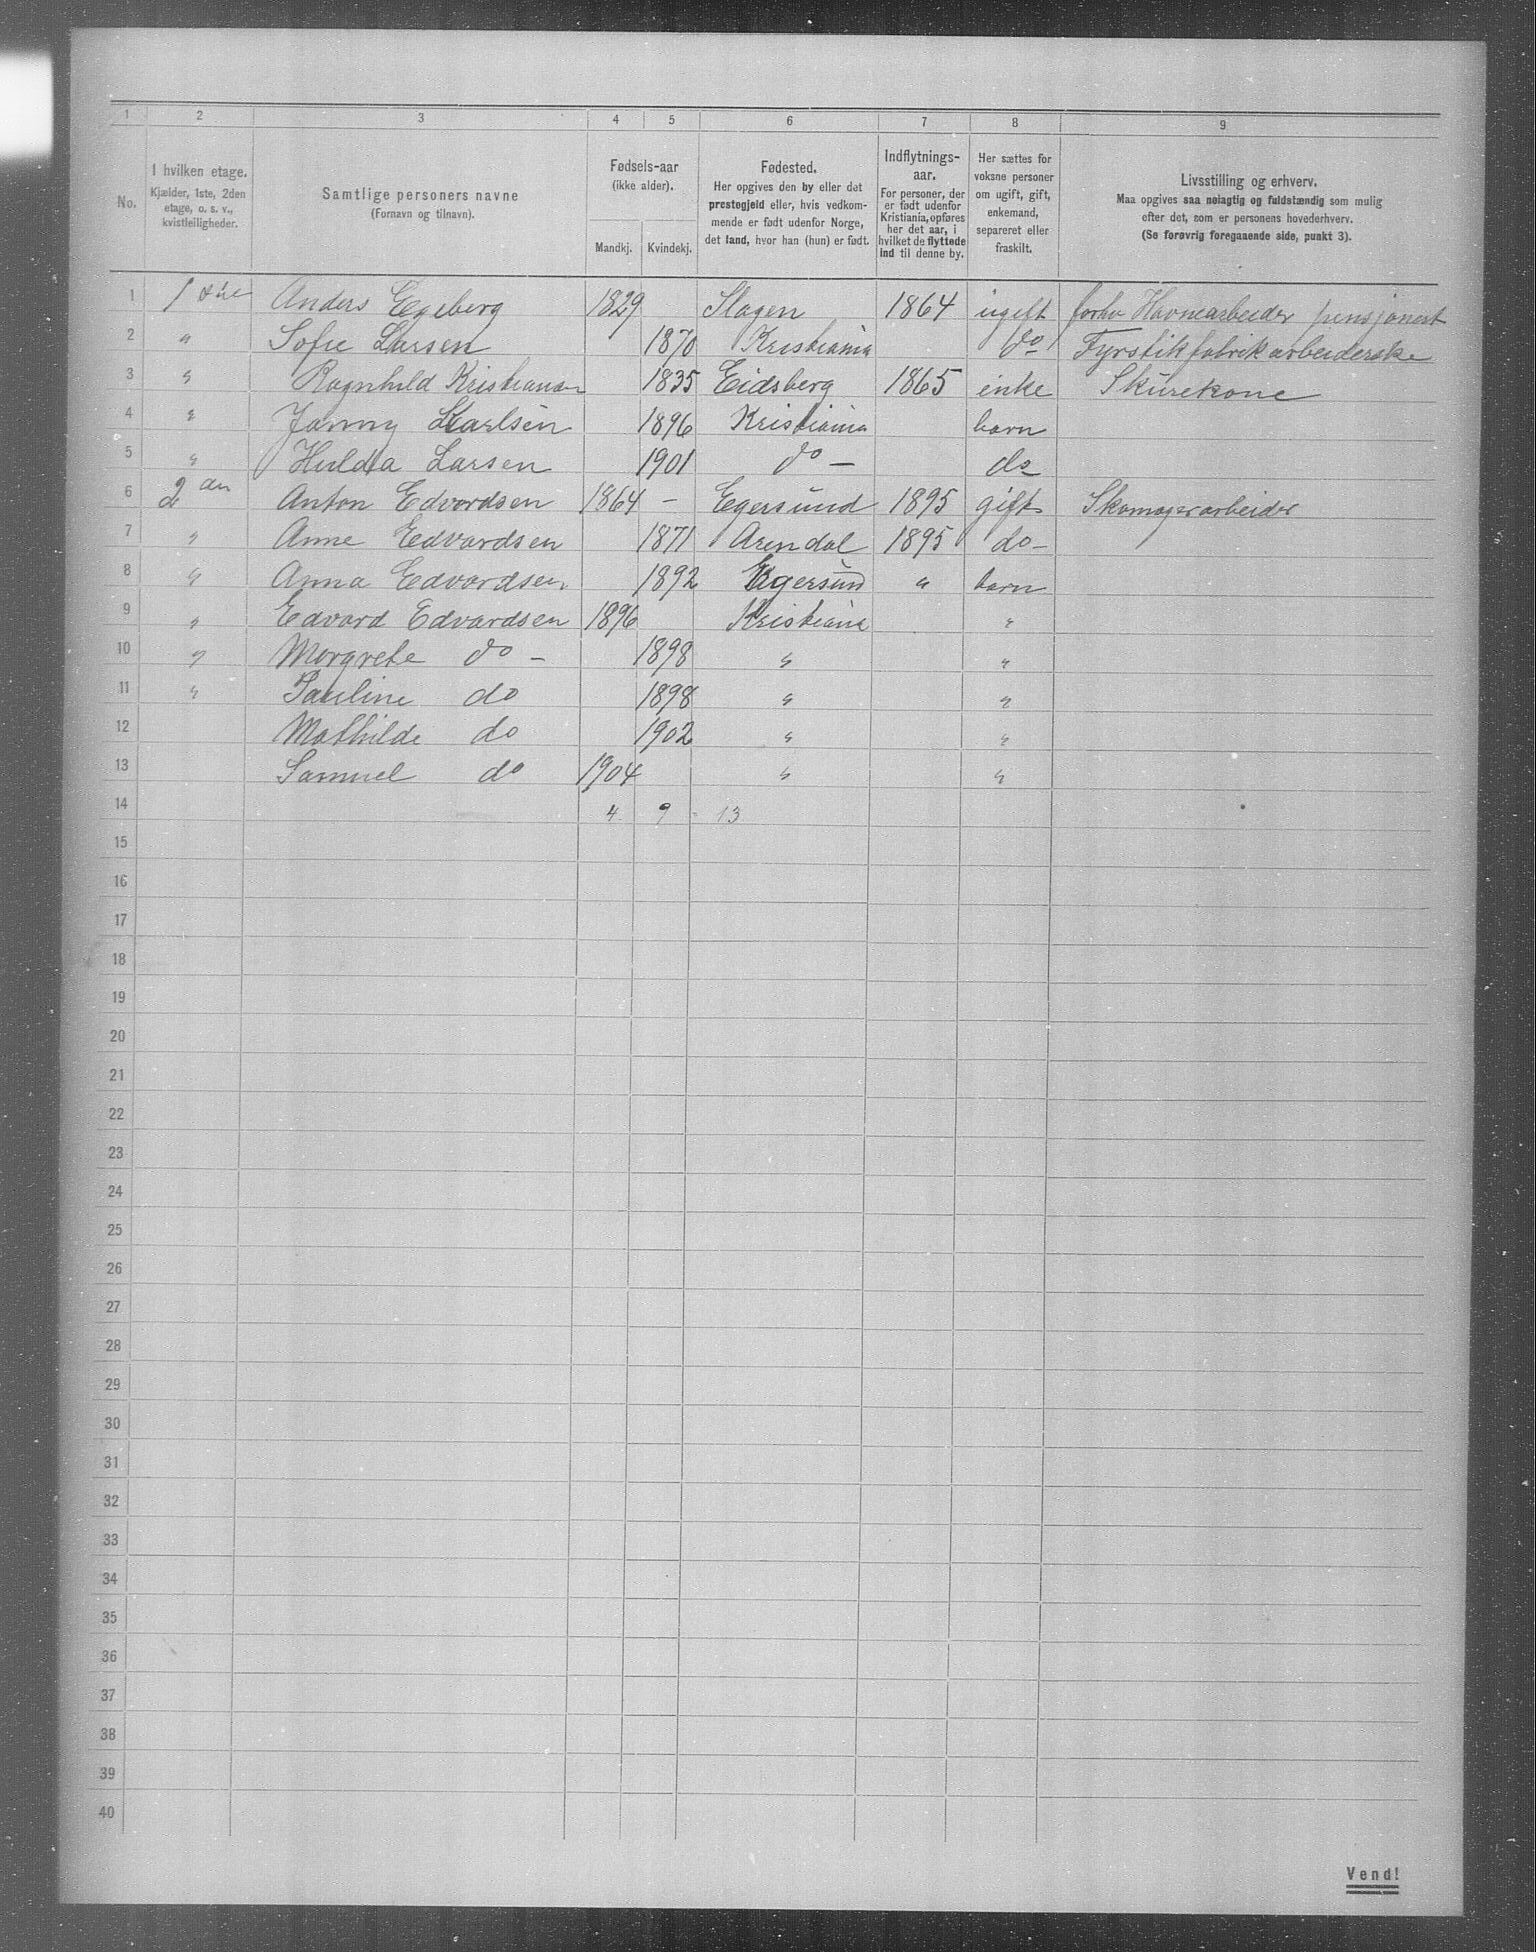 1 2 3 4 5 6 7 8 9
No. I hvilken etage. Kjælder, 1ste, 2den etage, o. s. v., kvistleiligheder. Samtlige personers navne (Fornavn og tilnavn). Fødsels-aar (ikke alder). Mandkj. Kvindekj. Fødested. Her opgives den by eller det prestegjeld eller, hvis vedkommende er født udenfor Norge, det land, hvor han (hun) er født. Indflytnings-aar. For personer, der er født udenfor Kristiania, opføres her det aar, i hvilket de flyttede ind til denne by. Her sættes for voksne personer om ugift, gift, enkemand, separeret eller fraskilt. Livsstilling og erhverv. Maa opgives saa nøiagtig og fuldstændig som mulig efter det, som er personens hovederhverv. (Se forøvrig foregaaende side, punkt 3).
1 1ste Anders Egeberg 1829 Slagen 1864 ugift forhv Havnearbeider pensjonert
2 " Sofie Larsen 1870 Kristiania do Fyrstikfabrikarbeiderske
3 " Ragnhild Kristiansen 1835 Eidsberg 1865 enke Skurekone
4 " Janny Karlsen 1896 Kristiania barn
5 " Hulda Larsen 1901 do – do
6 2den Anton Edvardsen 1864 – Egersund 1895 gift Skomagerarbeider
7 " Anne Edvardsen 1871 Arendal 1895 do –
8 " Anna Edvardsen 1892 Egersund " barn
9 " Edvard Edvardsen 1896 Kristiania "
10 " Margrete do – 1898 " "
11 " Pauline do 1898 " "
12 Mathilde do 1902 " "
13 Samuel do 1904 " "
14 4 9 - 13
15
16
17
18
19
20
21
22
23
24
25
26
27
28
29
30
31
32
33
34
35
36
37
38
39
40
Vend!